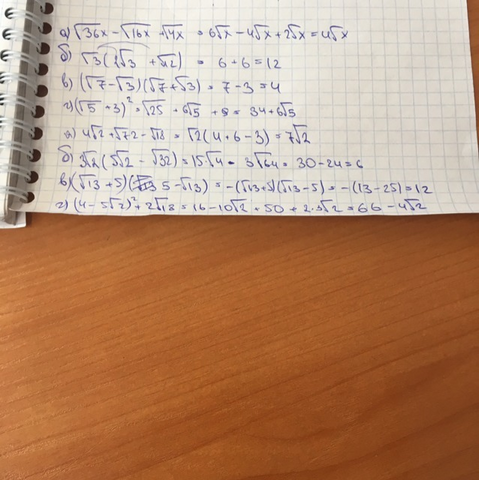 а) √36x - √16x + √4x = 6√x - 4√x + 2√x = 4√x
б) √3(2√3 + √12) = 6 + 6 = 12
в) (√7 - √3)(√7 + √3) = 7 - 3 = 4
г) (√5 + 3)² = √25 + 6√5 + 9 = 34 + 6√5
а) 4√2 + √72 - √18 = √2(4 + 6 - 3) = 7√2
б) 3√2(5√2 - √32) = 15√4 - 3√64 = 30 - 24 = 6
в) (√13 + 5)(5 - √13) = -(√13+5)(√13 - 5) = -(13 - 25) = 12
г) (4 - 5√2)² + 2√18 = 16 - 10√2 + 50 + 2·3√2 = 66 - 4√2